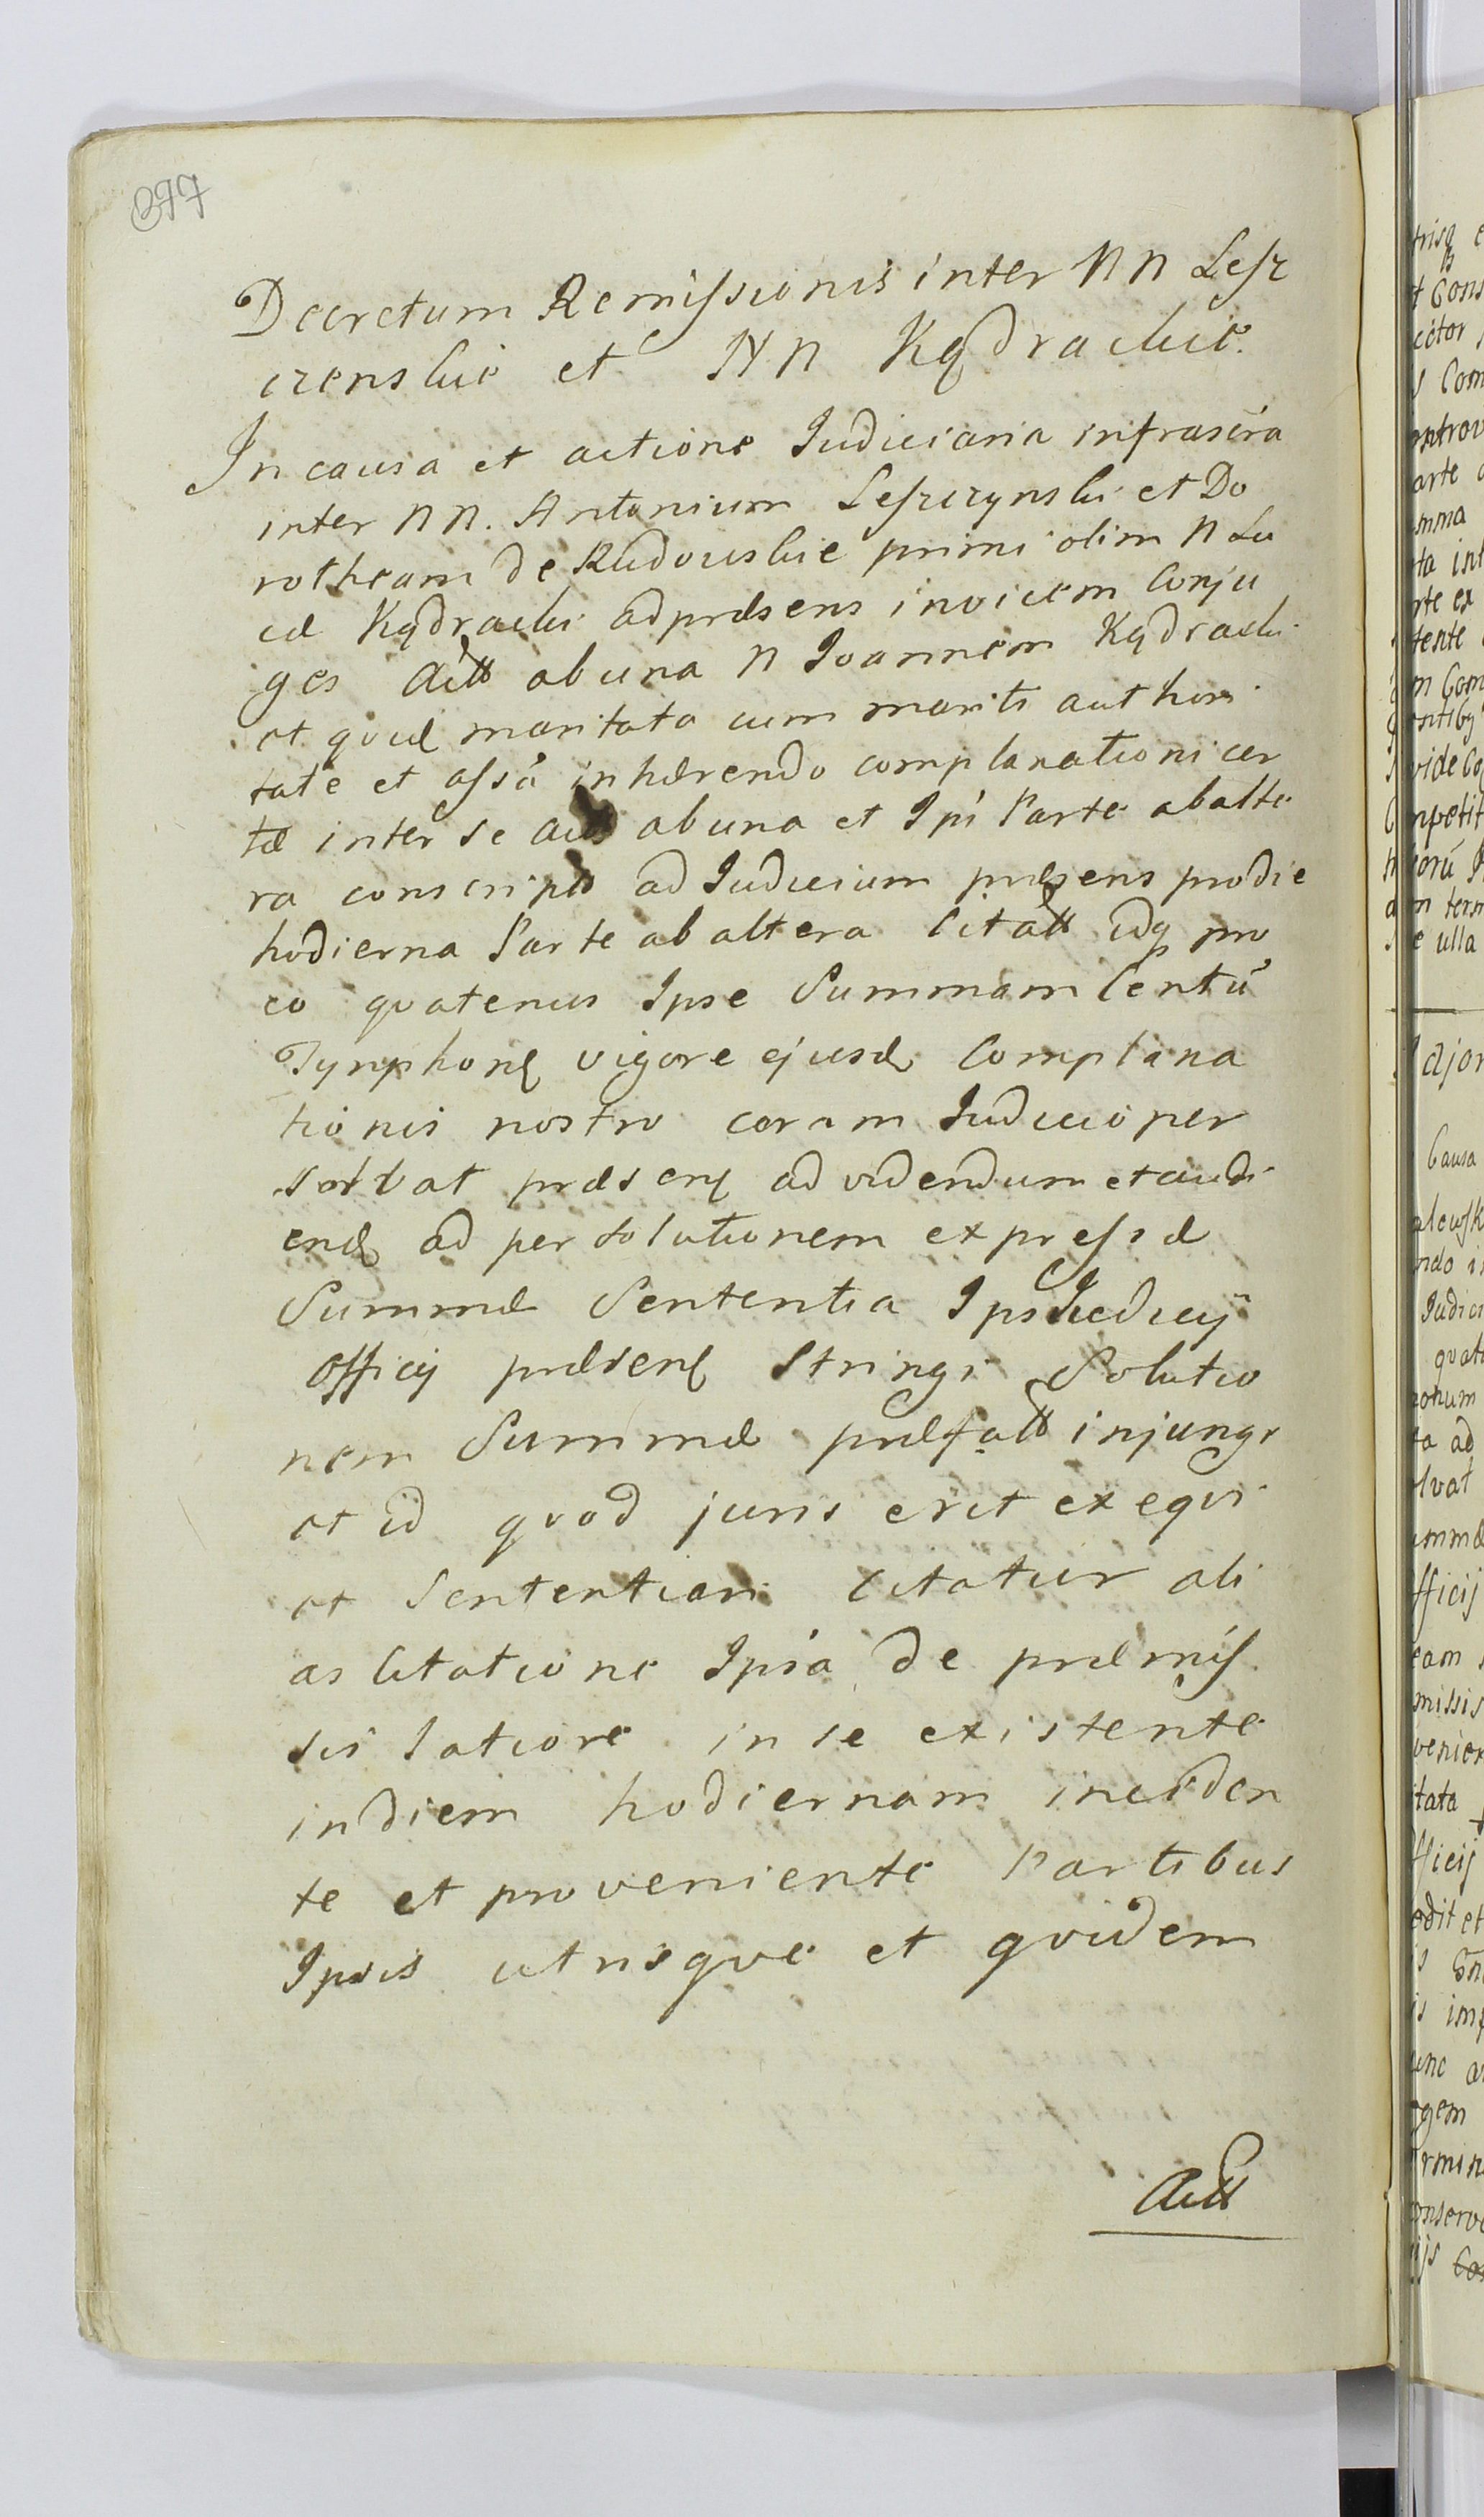 277
Decretum Remissionis inter NN Lesz
czenskie et NN Kądrackie
In causa et actione Judiciaria infrascra
inter NN. Antonium Leszczynski et Do
rotheam de Rudowskie primi olim N Lu
cæ Kądracki ad præsens invicem Conju
ges ab una N Joannem Kądracki
et quid maritata cum mariti authori
tate et assa inhærendo complanationi cer
tæ inter se ab una et Ipi Parte ab alte
ra conscripta ad Judicium præsens pro die
hodierna Parte ab altera Citatt idq pro
eo quatenus Ipse Summam Centũ
Tymphonę vigore ejusdę Complana
tionis nostro coram Judicio per
solvat præsenę ad videndum et audi
endę ad persolutionem expressæ
Summæ Sententia Ips Judicij
Officij præsenę Stringi Solutio
nem Summæ præfatt injungi
et id quod juris erit exequi
et Sententiari Citatur ali
as Citatione Ipsa de præmis
sis latiore in se existente
in diem hodiernam inciden
te et proveniente Partibus
Ipsis utrisque et quidem